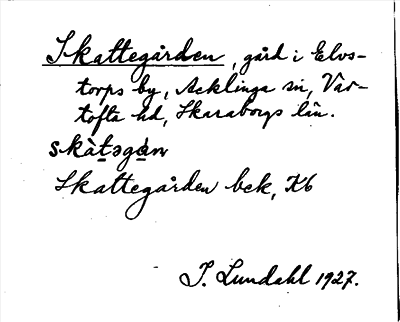 Skattegården, gård i Elvs-
torps by, Acklinga sn, Var-
tofta hd, Skaraborgs län.
skàt̲əgá̲n
Skattegården bck, Kb
I. Lundahl 1927.